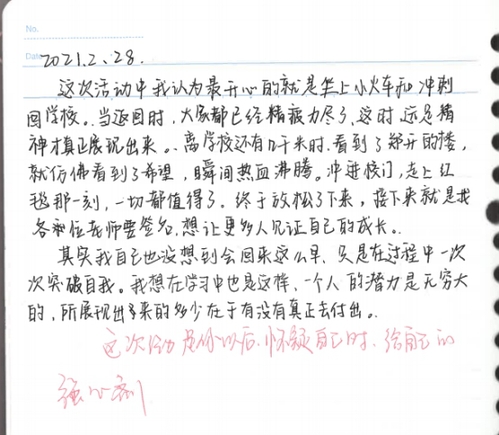 No.
Date 2021.2.28.
这次活动中我认为最开心的就是坐上小火车和冲刺
回学校。当返回时，大家都已经精疲力尽了，这时远足精
神才真正展现出来。离学校还有几千米时，看到了郑开的楼，
就仿佛看到了希望，瞬间热血沸腾。冲进校门，走上红
毯那一刻，一切都值得了。终于放松了下来，接下来就是找
各种位老师要签名，想让更多人见证自己的成长。
其实我自己也没想到会回来这么早，只是在过程中一次
次突破自我。我想在学习中也是这样，一个人的潜力是无穷大
的，所展现出来的多少在于有没有真正去付出。
这次活动是你以后怀疑自己时，给自己的
强心剂